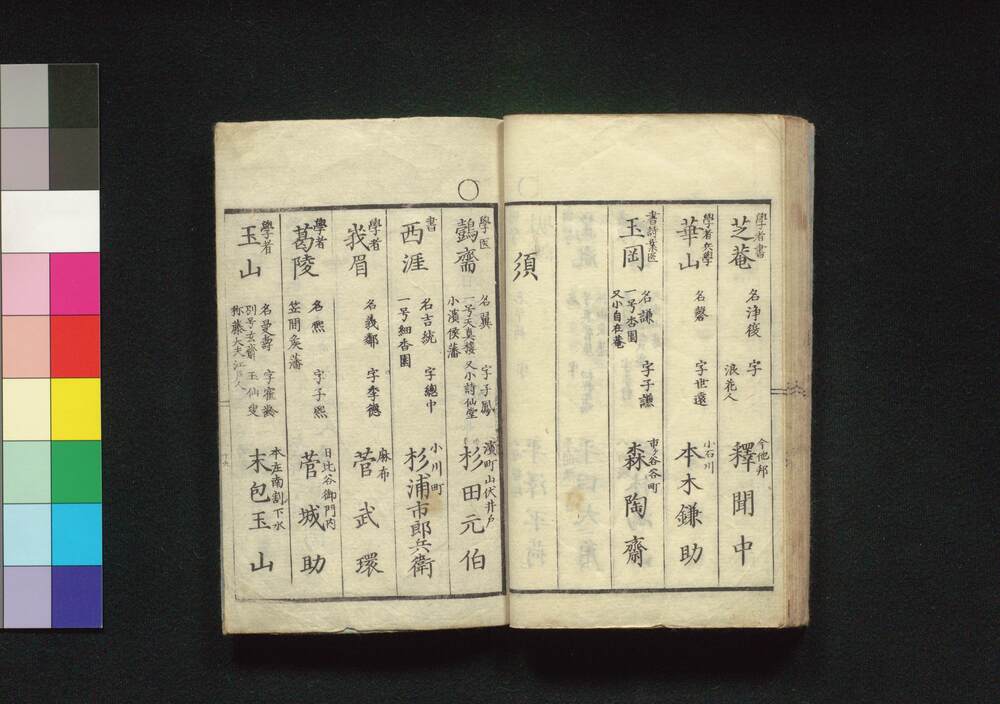 學者書
芝菴
名浄復 字
浪花人
今他邦
釋聞中
學者兵學
華山
名馨 字世遠
小石川
本木鎌助
書詩集医
玉岡
名謙 字子謙
一号杏園
又小自在菴
市谷谷町
森陶齋
須
○
學医
鷧齋
名翼 字子鳳
一号天真樓 又小詩仙堂
小濱侯藩
濱町山伏井戸
杉田元伯
書
西涯
名吉統 字總中
一号細香園
小川町
杉浦市郎兵衛
學者
峩眉
名義鄰 字季德
麻布
菅武環
學者
葛陵
名熙 字子熙
笠間矦藩
日比谷御門内
菅城助
學者
玉山
名曼壽 字寉齡
別号玄齋 玉仙叟
称藤大夫江戸人
本庄南割下水
末包玉山